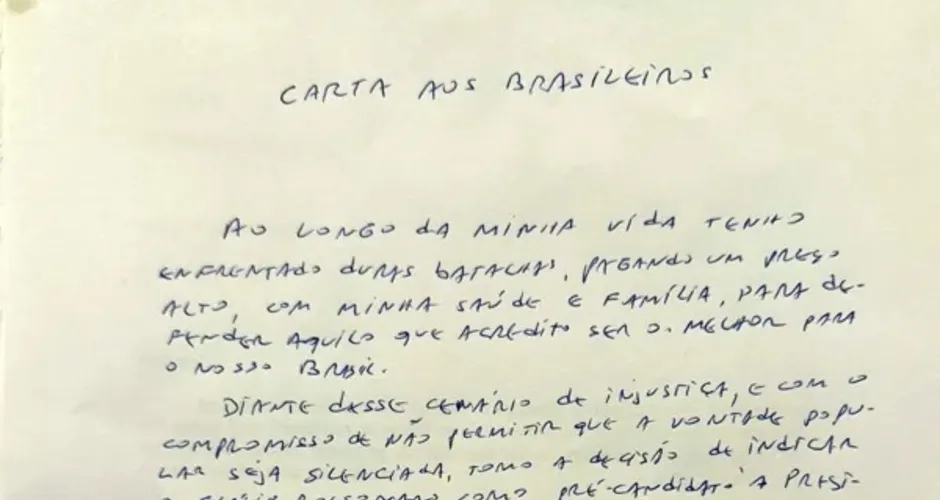 CARTA AOS BRASILEIROS
AO LONGO DA MINHA VIDA TENHO
ENFRENTADO DURAS BATALHAS, PAGANDO UM PREÇO
ALTO, COM MINHA SAÚDE E FAMÍLIA, PARA DE-
FENDER AQUILO QUE ACREDITO SER O MELHOR PARA
O NOSSO BRASIL.
DIANTE DESSE CENÁRIO DE INJUSTIÇA, E COM O
COMPROMISSO DE NÃO PERMITIR QUE A VONTADE POPU-
LAR SEJA SILENCIADA, TOMO A DECISÃO DE INDICAR
O FLÁVIO BOLSONARO COMO PRÉ-CANDIDATO À PRESI-